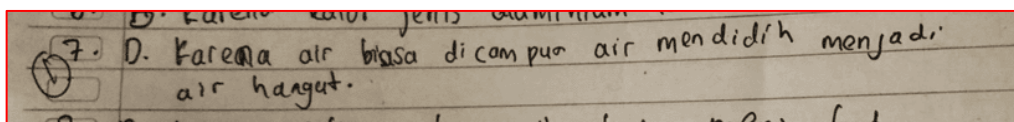 B. Karena kalor jenis aluminium
7. D. Karena air biasa dicampur air mendidih menjadi
air hangat.